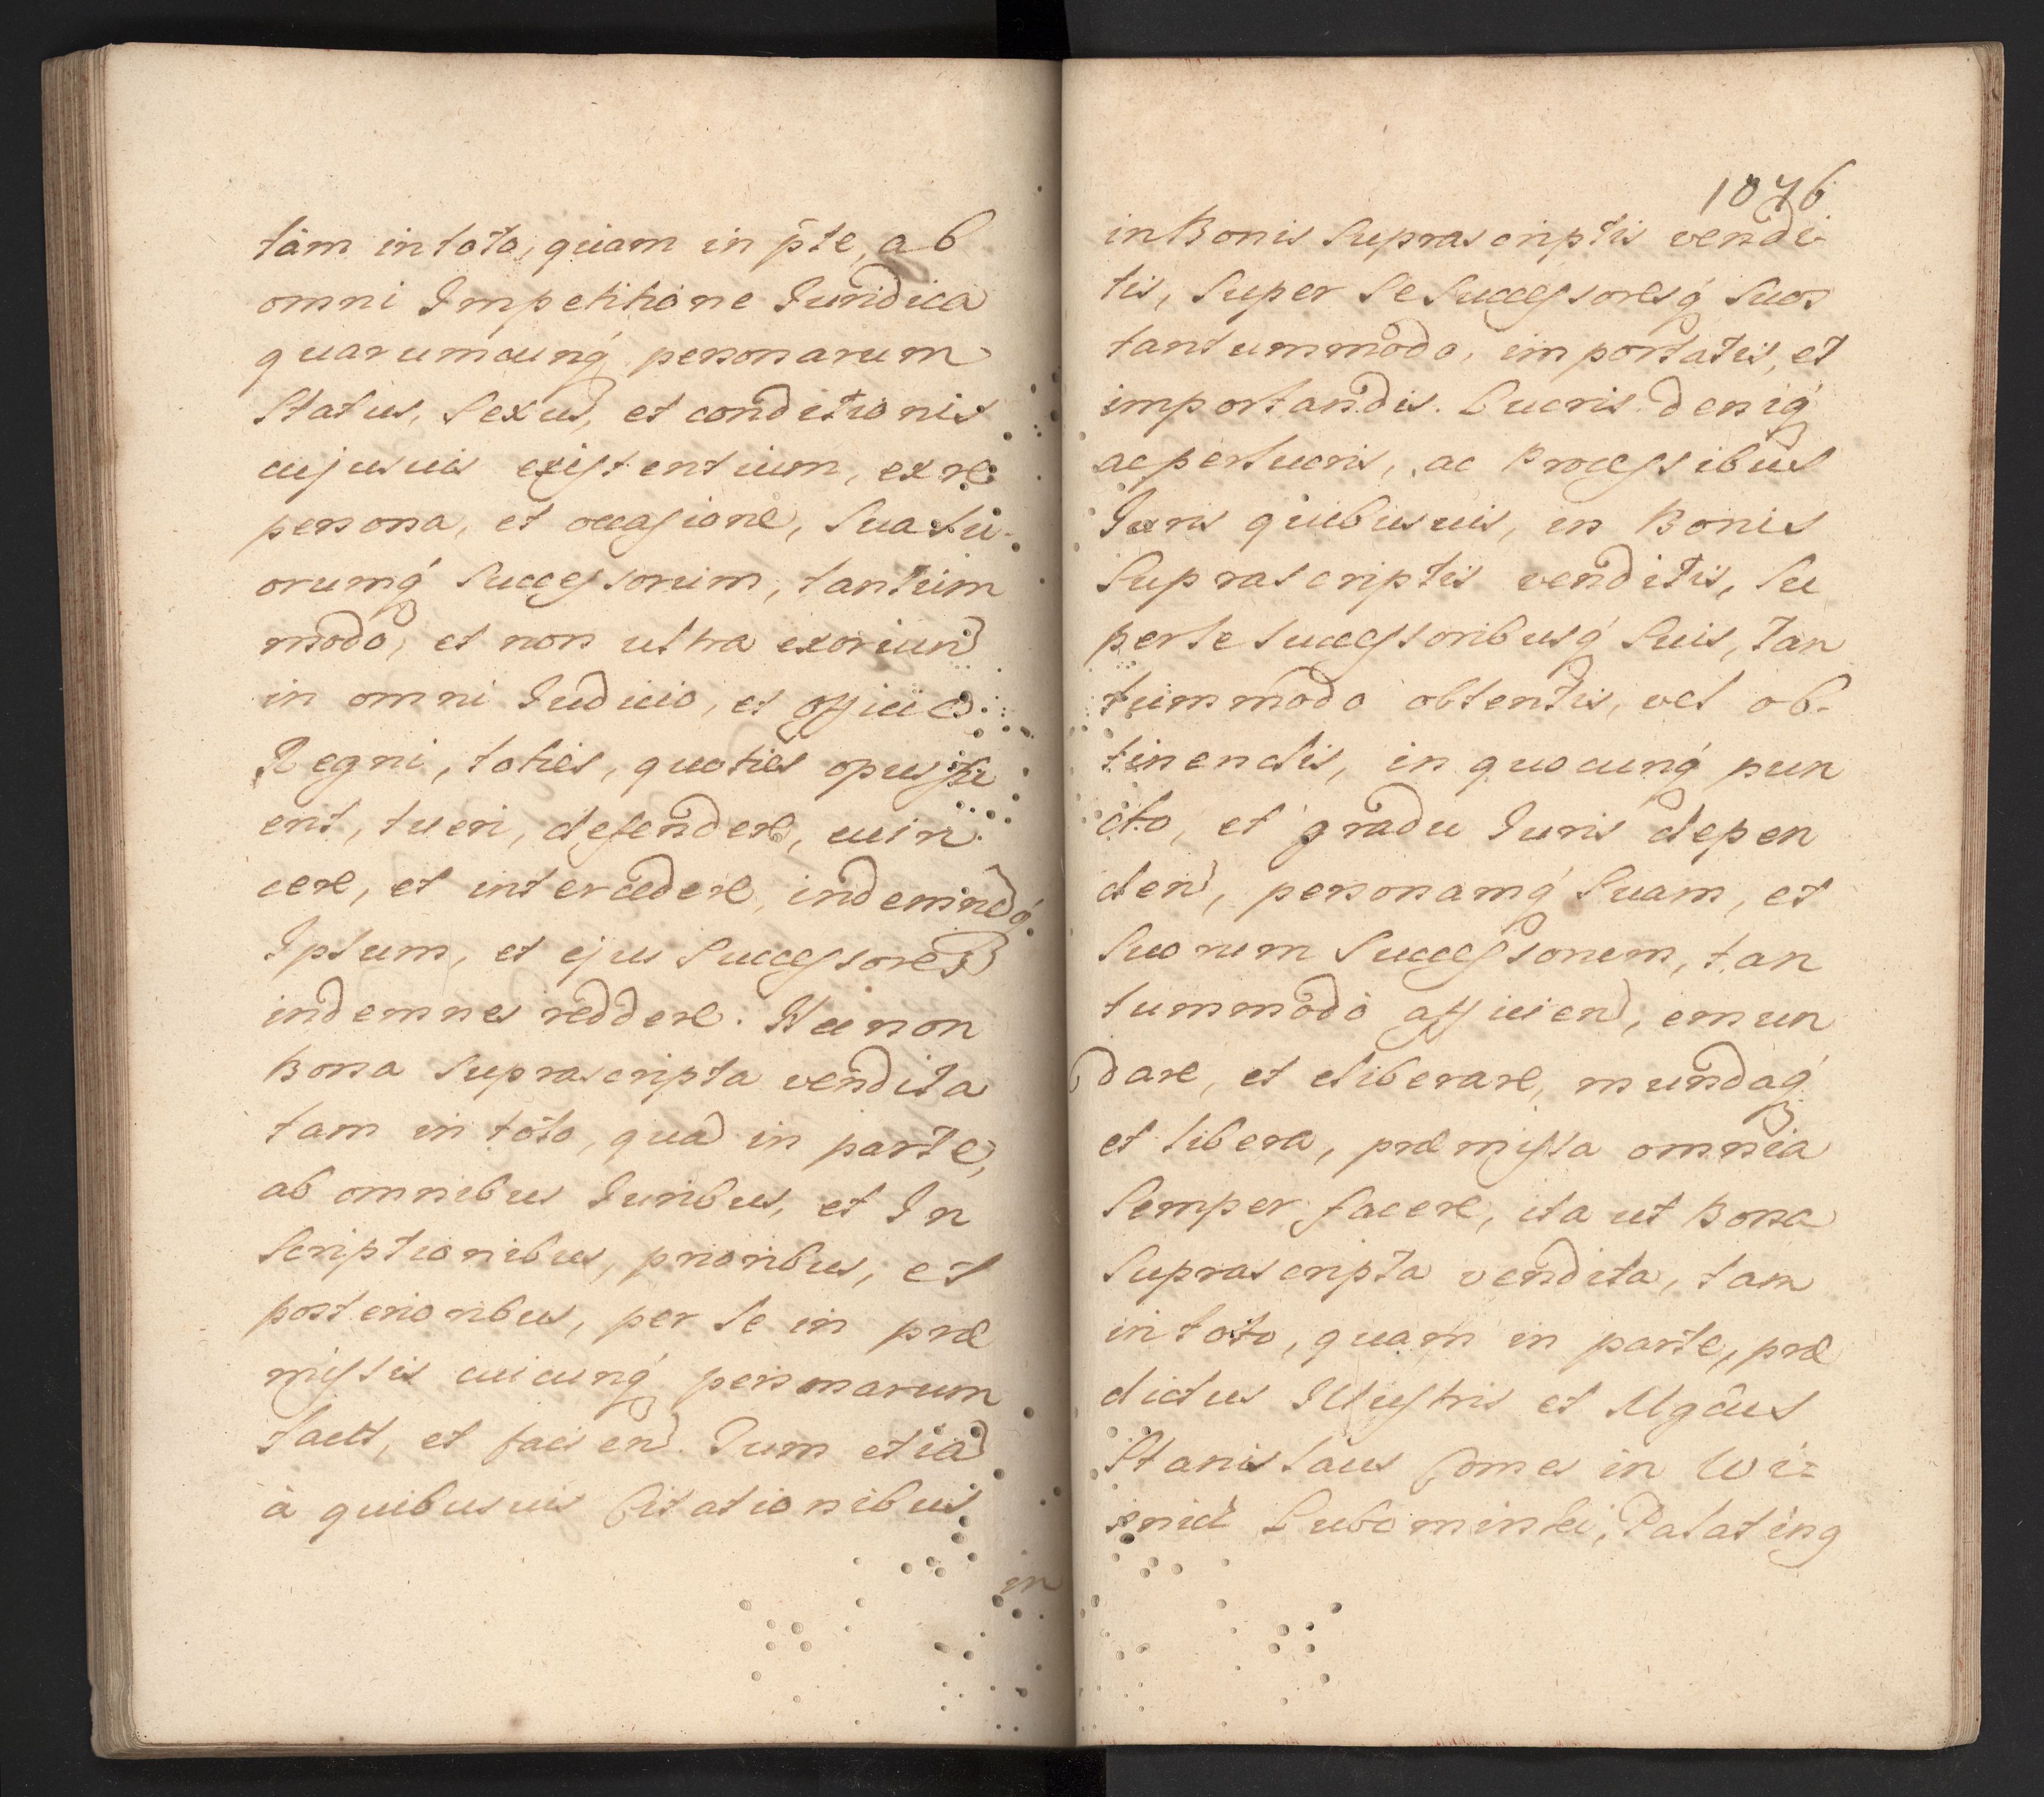 tàm in toto, quam in pte, ab
omni Impetitione Iuridica
quarumcunq́ personarum
Status, Sexus, et conditionis
cujusuis existentium, ex re
persona, et occasione, Sua Su-
orumq́ Successorum, tantum
modo, et non ultra exoriend
in omni Iudicio, et officio
Regni, toties, quoties opus fu
erit, tueri, defendere, euin
cere, et intercedere, indemnēq́
Ipsum, et ejus Successores
indemnes reddere. Nec non
Bona Suprascripta vendita
tam in toto, quā in parte,
ab omnibus Iuribus, et In
scriptionibus, prioribus, et
posterioribus, per Se in præ
missis cuicunq́ personarum
fact, et faciend. Tum etiā
à quibusuis Citationibus
in
1076
in Bonis Suprascriptis vendi-
tis, Super Se Successoresq́ Suos
tantummodo, importatis, et
importandis. Lucris deniq́
ac perlucris, ac Processibus
Iuris quibusuis, in Bonis
Suprascriptis venditis, Su
per Se Successoribusq́ Suis, tan
tummodo obtentis, vel ob-
tinendis, in quocunq́ pun
cto, et gradu Iuris depen
den, personamq́ Suam, et
Suorum Successorum, tan
tummodo afficien, emun
dare, et eliberare, mundaq́
et libera, præmissa omnia
Semper facere, ita ut Bona
Suprascripta vendita, tam
in toto, quam in parte, præ
dictus Illustris et Mgcus
Stanislaus Comes in Wi=
snicz Lubomirski, Palating